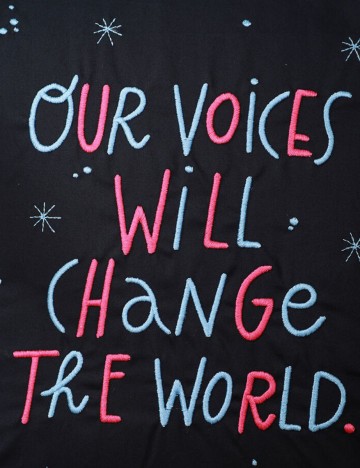 OUR VOiCES
WiLL
CHaNGe
ThE WORLD.